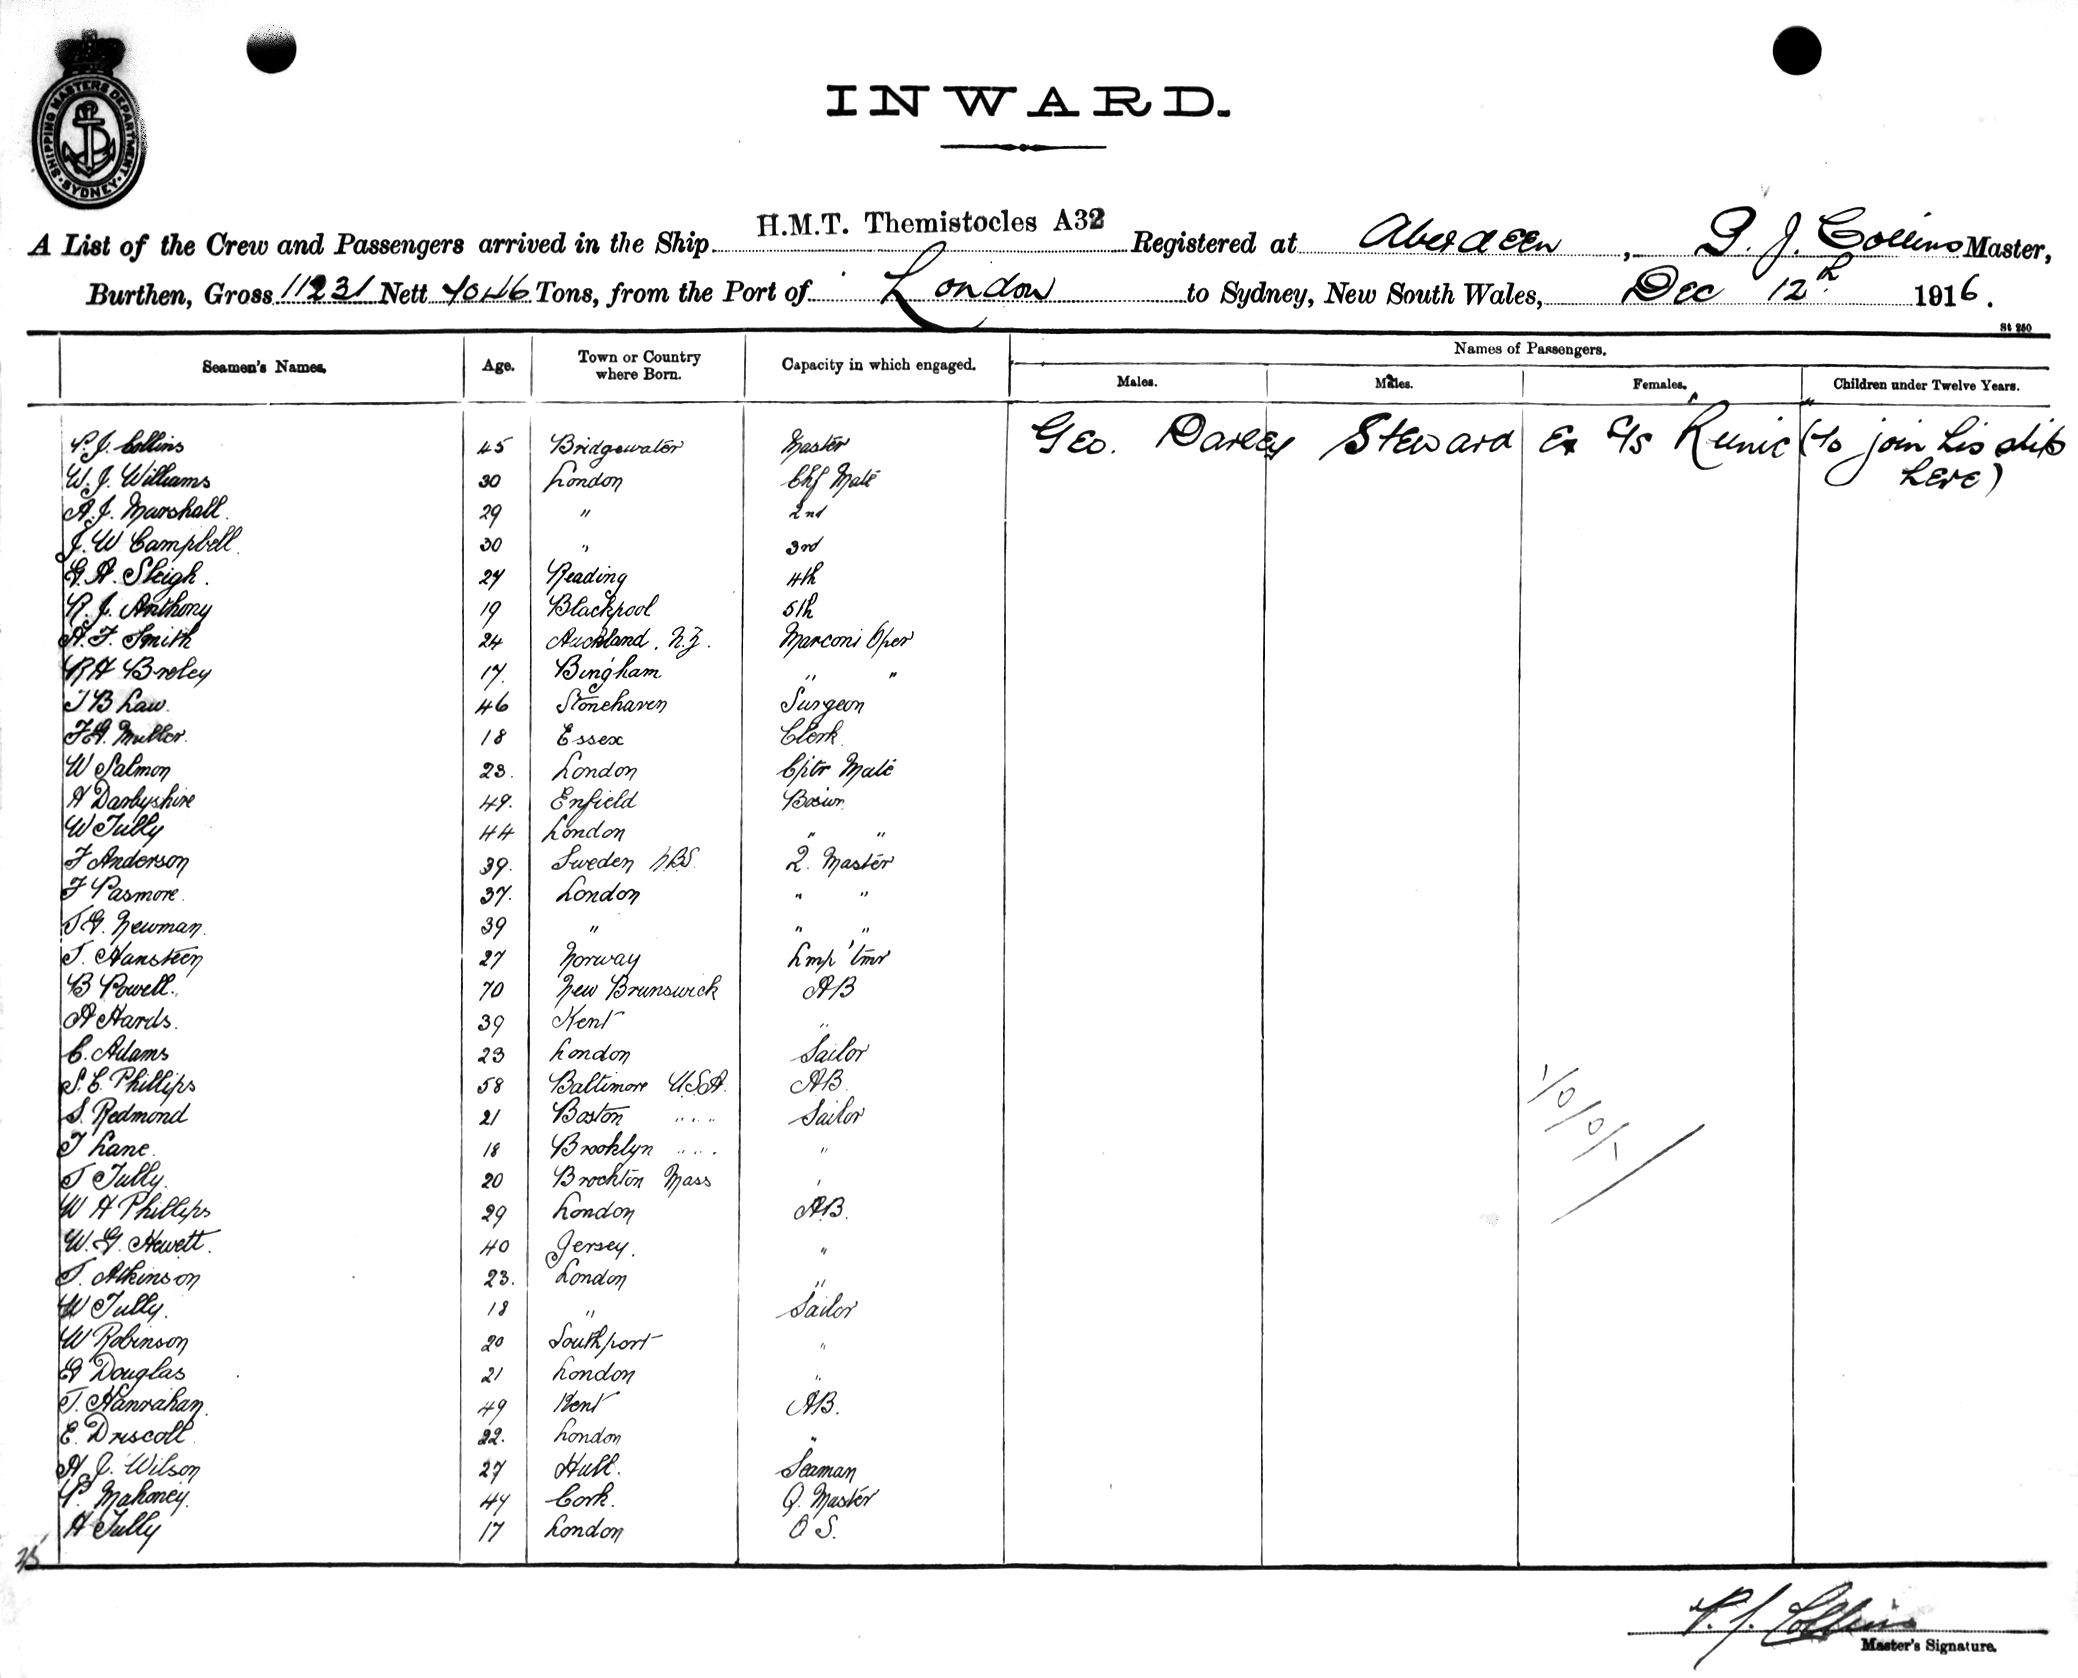 SHIPPING MASTERS DEPARTMENT
SYDNEY
INWARD.
A List of the Crew and Passengers arrived in the Ship H.M.T. Themistocles A32 Registered at Aberdeen, P. J. Collins Master,
Burthen, Gross 11231 Nett 7046 Tons, from the Port of London to Sydney, New South Wales, Dec 12th 1916.
St 250
Seamen's Names. Age. Town or Country where Born. Capacity in which engaged. Names of Passengers.
Males. Males. Females. Children under Twelve Years.
P. J. Collins 45 Bridgewater Master Geo. Darley Steward Ex S/s "Runic" (to join his ship
W. J. Williams 30 London Chf Mate here)
A. J. Marshall 29 " 2nd
J. W Campbell 30 " 3rd
G. A. Sleigh. 27 Reading 4th
R. J. Anthony 19 Blackpool 5th
A. F. Smith 24 Auckland. N.Z. Marconi Oper
R A 17. Bingham " "
J B Law. 46 Stonehaven Surgeon
F G. 18 Essex Clerk.
W Salmon 23. London Cptr Mate
A Darbyshire 49. Enfield Bosun
W Tully 44 London " "
F Anderson 39. Sweden NBS. Q. Master
F Pasmore. 37. London " "
T G. Newman. 39 " " "
T. Hansteen 27 Norway Lmp Tmr
B Powell. 70 New Brunswick AB
A Hards. 39 Kent "
C. Adams 23 London Sailor
S. C. Phillips 58 Baltimore U.S.A. AB.
S. Redmond 21 Boston " " Sailor
T Lane. 18 Brooklyn " " "
T Tully. 20 Brockton Mass "
W A Phillips 29 London A.B.
W. G. Hewett. 40 Jersey. "
T. Atkinson 23. London "
W Tully. 18 " Sailor
W Robinson 20 Southport "
G Douglas 21 London "
T. Hanrahan. 49 Kent AB.
E. Driscoll 22. London "
A. J. Wilson 27 Hull. Seaman
P. Mahoney. 47 Cork. Q. Master
A Tully 17 London O S.
35
P. J. Collins
Master's Signature.